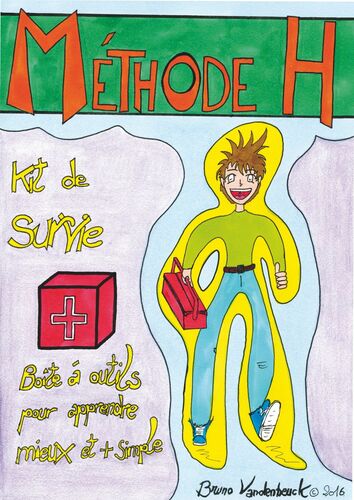 MÉTHODE H
Kit de
Survie
Boîte à outils
pour apprendre
mieux et + simple
Bruno Vandenbeuck © 2016